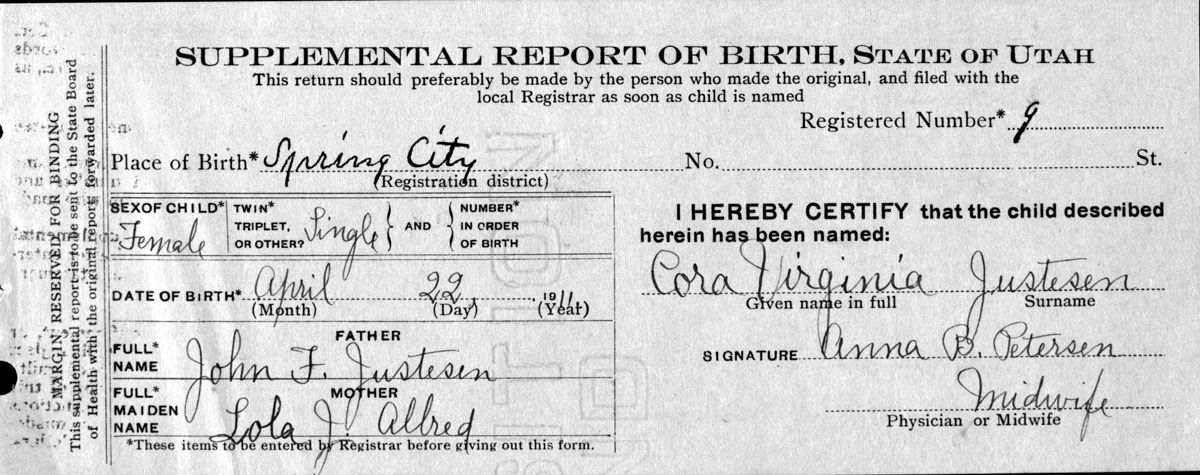 SUPPLEMENTAL REPORT OF BIRTH, STATE OF UTAH
This return should preferably be made by the person who made the original, and filed with the
local Registrar as soon as child is named
Registered Number* 9
Place of Birth* Spring City No. St.
(Registration district)
SEX OF CHILD* Female
TWIN* TRIPLET, OR OTHER? Single
AND
NUMBER* IN ORDER OF BIRTH
DATE OF BIRTH* April 22, 1911
(Month) (Day) (Year)
FATHER
FULL* NAME John F. Justesen
MOTHER
FULL* MAIDEN NAME Lola J Allred
*These items to be entered by Registrar before giving out this form.
I HEREBY CERTIFY that the child described
herein has been named:
Cora Virginia Justesen
Given name in full Surname
SIGNATURE Anna B. Petersen
Midwife
Physician or Midwife
MARGIN RESERVED FOR BINDING
This supplemental report is to be sent to the State Board
of Health with the original report, forwarded later.